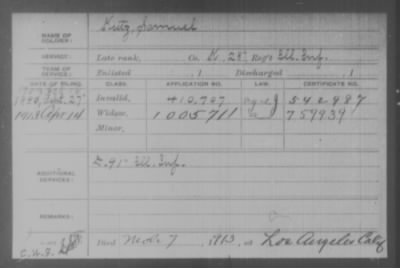 NAME OF SOLDIER: Samuel
SERVICE: Late rank, Co. 28" Reg't Ill. Inf.
TERM OF SERVICE: Enlisted , 1 Discharged , 1
DATE OF FILING. CLASS. APPLICATION NO. LAW. CERTIFICATE NO.
1880, Sept. 27 Invalid, 410,707 542987
1913 Apr 14 Widow, 1005711 759939
Minor,
ADDITIONAL SERVICES: 91" Ill. Inf.
REMARKS:
Died 7, 1913, at Los Angeles Calif